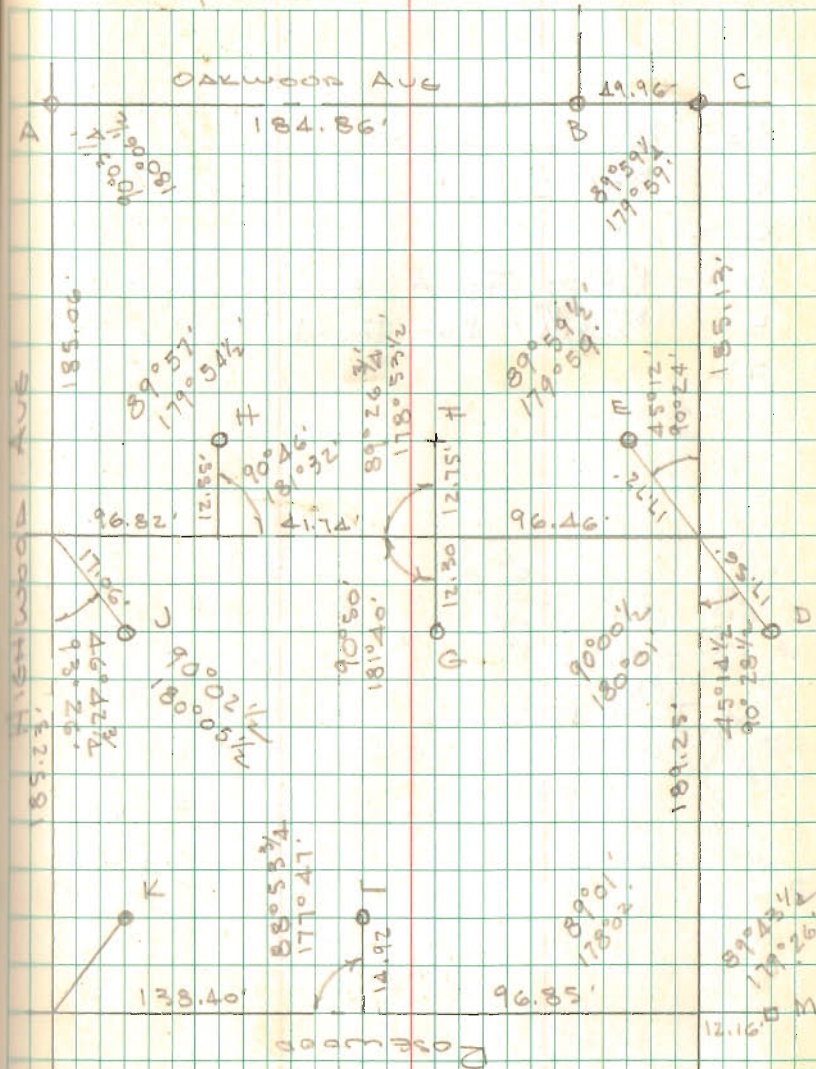 OAKWOOD AVE
49.96'
C
A
184.86'
B
90°03¼'
180°06½'
89°59½'
179°59'
185.06'
185.13'
HIGHWOOD AVE
89°57'
179°54½'
H
89°26¾'
178°53½'
F
89°59½'
179°59'
E
45°12'
90°24'
12.85'
90°46'
181°32'
12.75'
17.72'
96.82'
41.74'
96.46'
17.06'
12.30
17.59'
J
G
D
46°42¾'
93°26'
90°02½'
180°05½'
90°50'
181°40'
90°00½
180°01'
45°14½
90°28½
185.23'
189.25'
K
88°53¾
177°47'
I
14.92
89°01'
178°02'
89°43½
179°26'
138.40'
96.85'
12.16'
M
ROSEWOOD